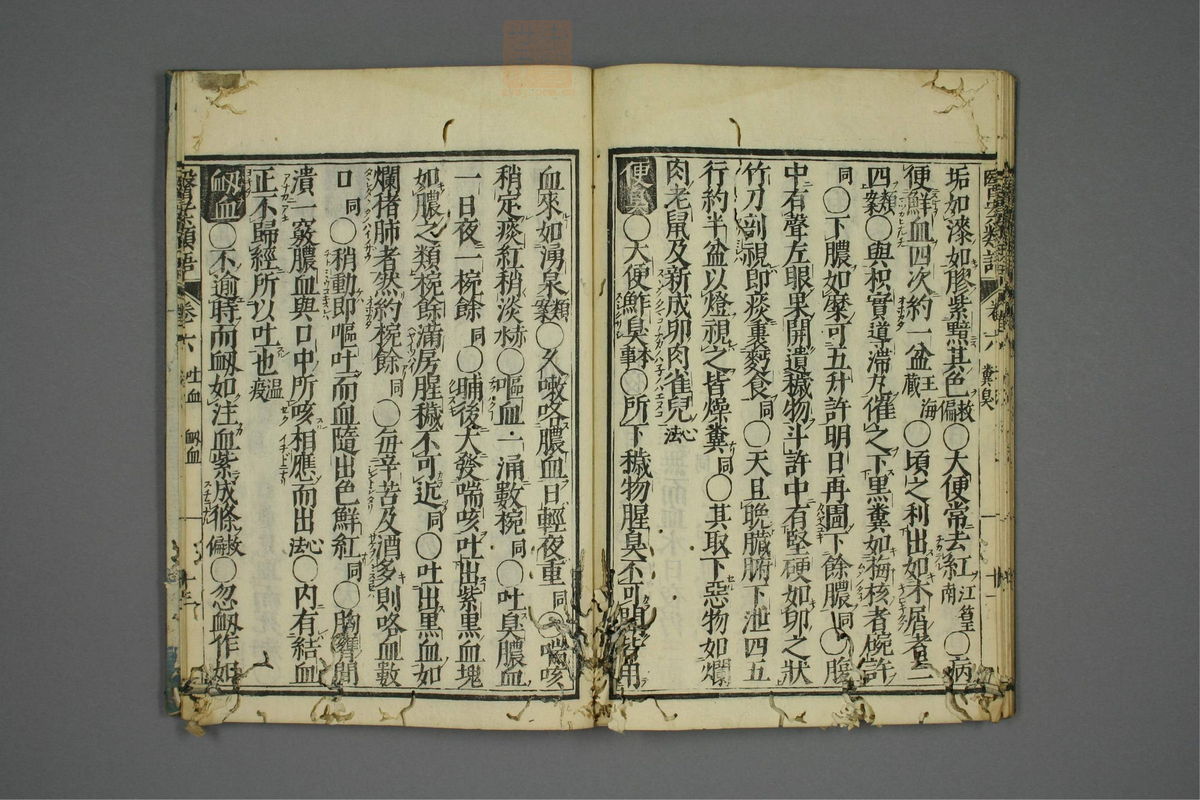 垢如漆如膠紫黯其色救偏〇大便常去紅江南〇病
便鮮血四次約一盆王海藏〇頃之利出如木屑者二
四類案〇與枳實導滯丸催之下黒糞如梅核者碗許
同〇下膿如糜可五升許明日再圊下餘膿同〇腹
中有聲左眼果開遺穢物斗許中有堅硬如卵之狀
竹刀剖視即痰裏麪食同〇天且晩臟腑下泄四五
行約半盆以燈視之皆燥糞同〇其取下惡物如爛
肉老鼠及新成卵肉雀兒心法
便臭〇大便鮓臭〇所下穢物腥臭不可
血來如湧泉類案〇久嗽咯膿血日輕夜重同〇喘咳
稍定痰紅稍淡赤水〇嘔血一涌數椀同〇吐臭膿血
一日夜一椀餘同〇晡後大發喘咳吐出紫黒血塊
如膿之類椀餘滿房腥穢不可近同〇吐出黒血如
爛猪肺者然約椀餘同〇毎辛苦及酒多則咯血數
口同〇稍動即嘔吐而血隨出色鮮紅同〇胸間
潰一竅膿血與口中所咳相應而出心法〇内有結血
正不歸經所以吐也温疫
衂血〇不逾時而衂如注血紫成條救偏〇忽衂作如
醫案類語 卷六 糞臭
醫案類語 卷六 吐血 衂血